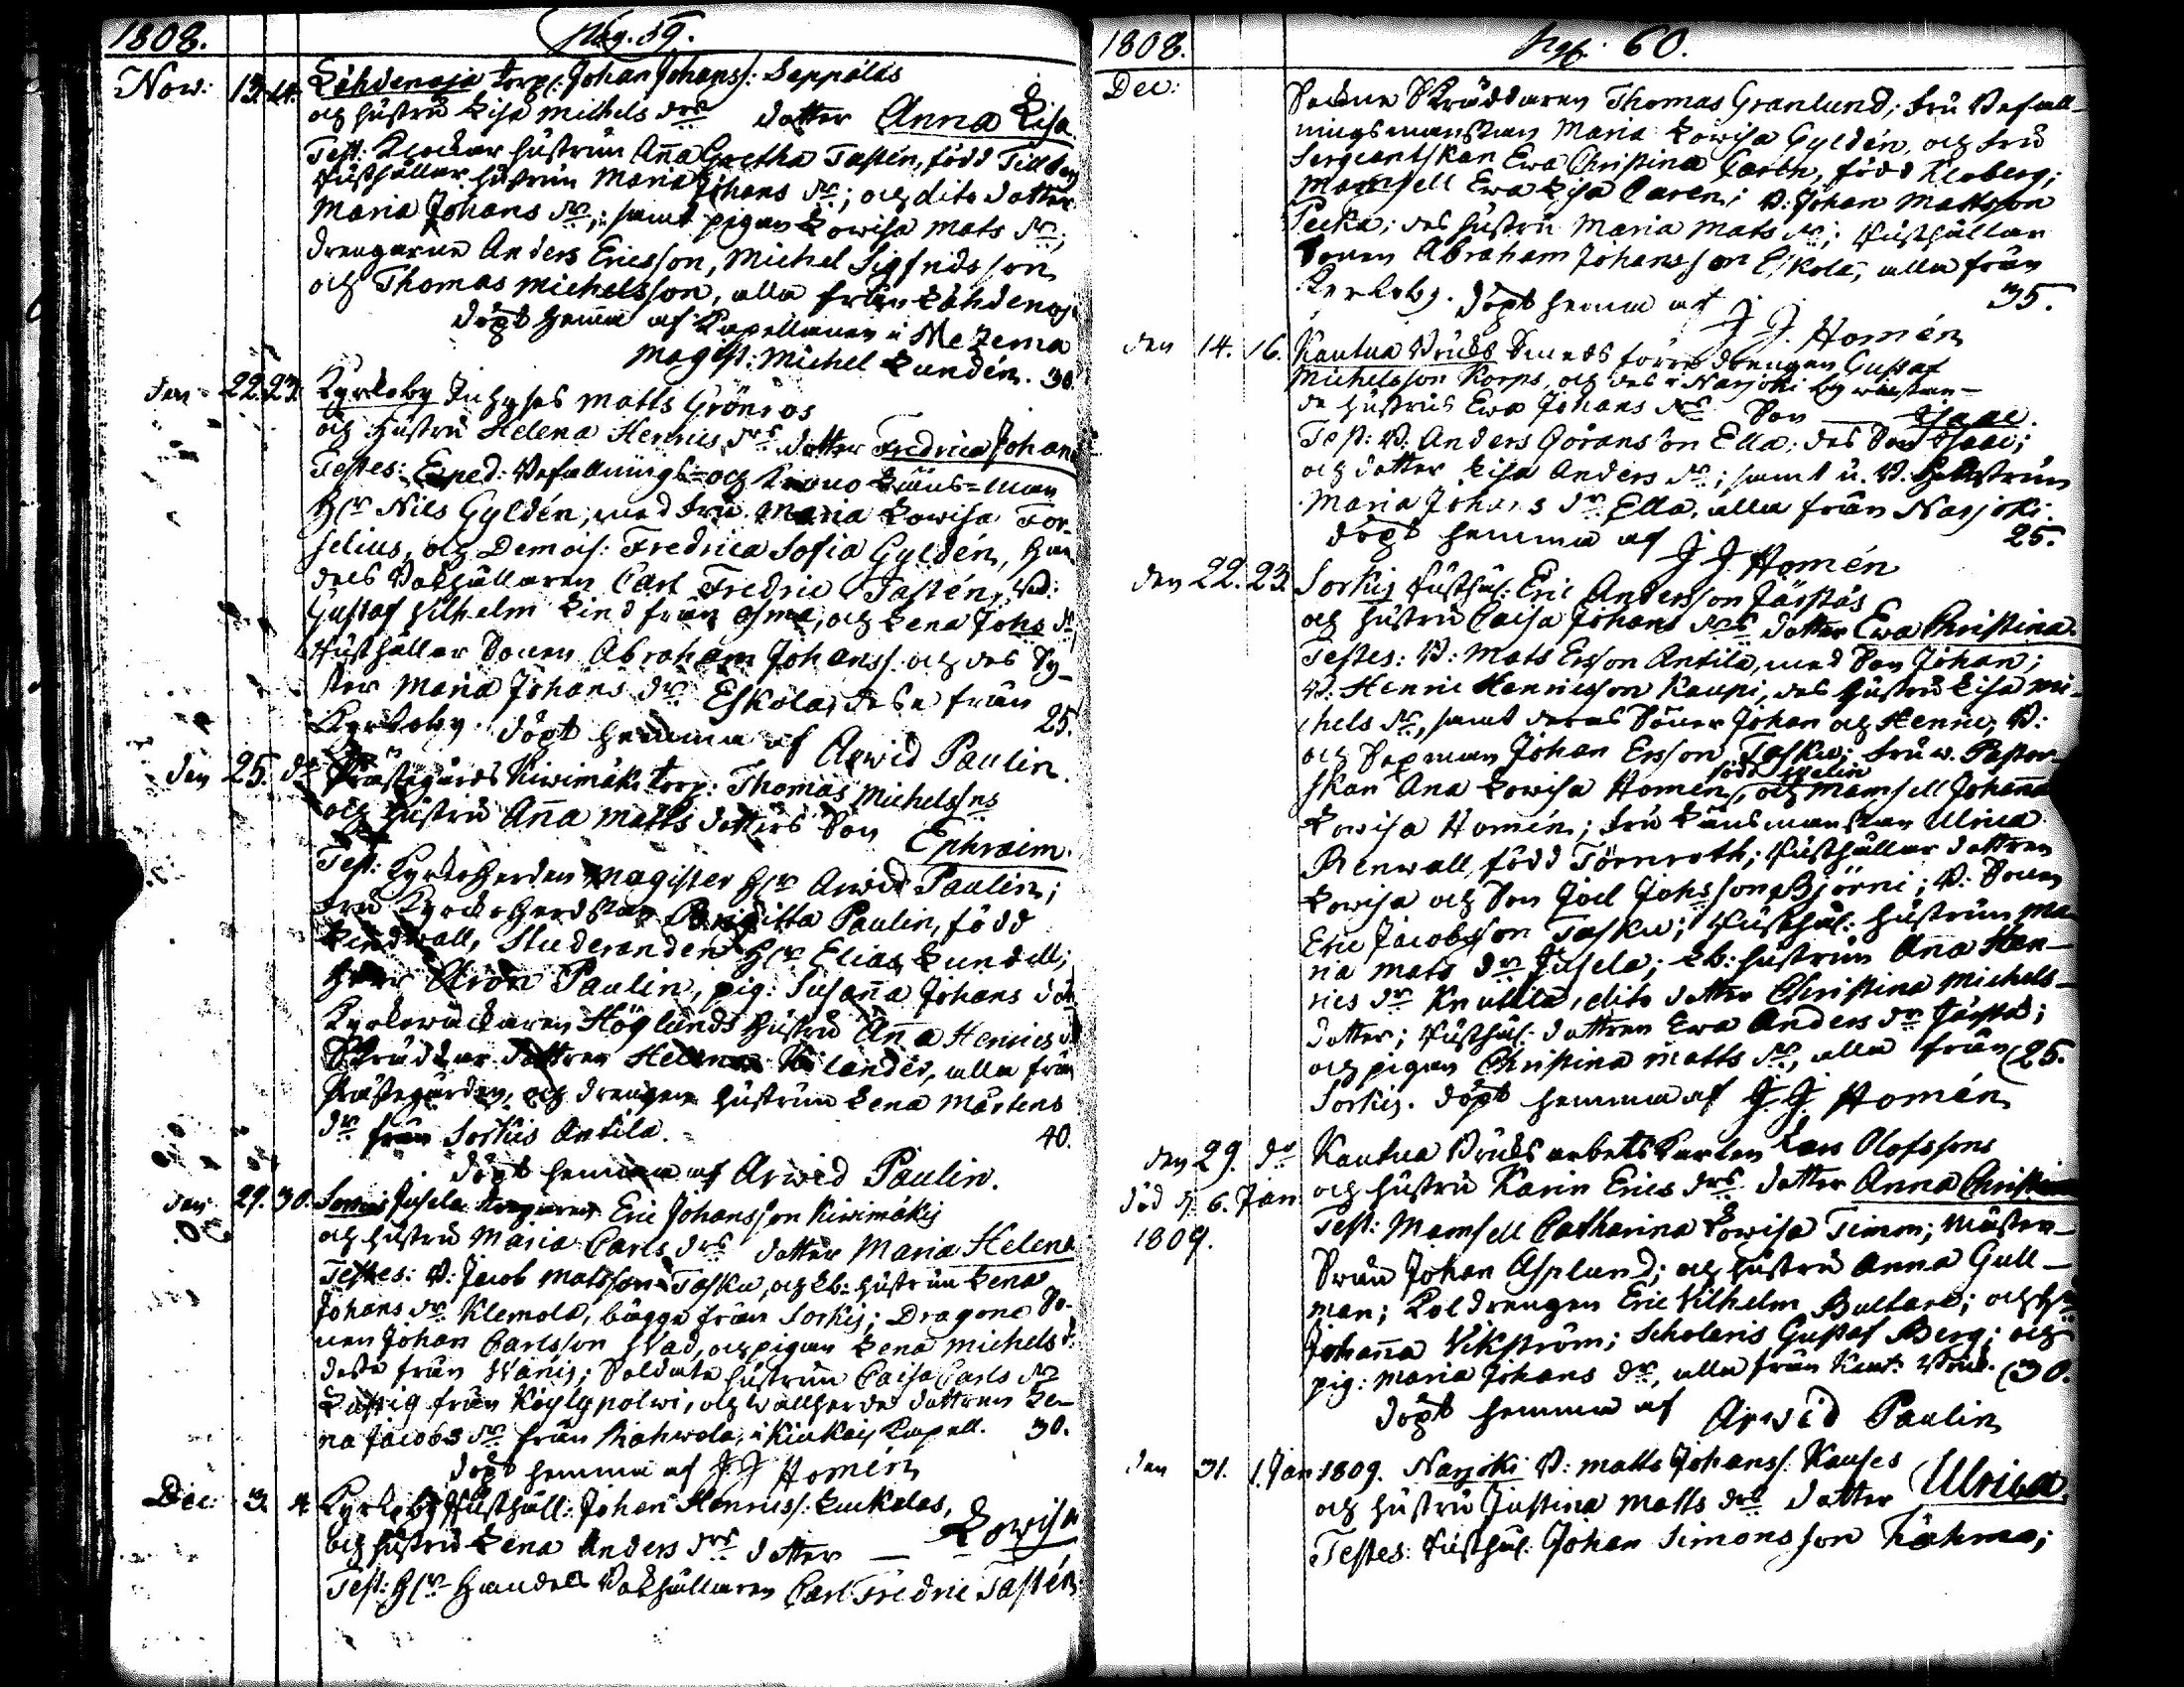 1808. pag. 59.
Nov: 13. 14. Löhdenoja torp: Johan Johanss: Seppäläs
och hustru Lisa Michels drs dotter Anna Lisa.
Test: Klockar hustrun Aña Gretha Tasten, född Tillberg
Rusthållar hustrun Maria Johans dr; och dito dotter
Maria Johans dr; samt pigan Lowisa Mats dr;
Drengarne Anders Ericsson, Michel Sigfridsson
och Thomas Michelsson, alla från Löhdenoja
döpt hemma af Kapellanen i Mezema
Magist: Michel Lundén. 30.
den 22. 23. Kyrkoby Inhyses Matts Grönros
och Hustru Helena Henrics drs dotter Fredrica Johana
Testes: Exped: Befallnings= och Krono Läns=man
Hr Nils Gyldén, med fru Maria Lowisa For-
selius, och Demois: Fredrica Sofia Gyldén, Han
dels Bokhållaren Carl Fredric Tastén,
Gustaf Vilhelm Lind från och Lena Johs dr
Rusthållar Sonen Abraham Johanss: och des Sy-
ster Maria Johans dr Eskola, dese från
Kyrkoby. döpt hemma af 25.
Arwid Paulin.
den 25. do Prästegårds Kiwimäki torp: Thomas Michelssns
och hustru Aña Matts dotters Son Ephraim.
Test: Kyrkoherden Magister Hr Arwid Paulin;
Fru Kyrkoherdskan Brigitta Paulin, född
Lindwall, Studeranden Hr Elias Lundell;
Herr Aron Paulin, pig: Susaña Johans dotr
Kyrkowäcktaren Höglunds Hustru Aña Henrics dr
Skräddar dottren Helena lander, alla från
Prästegården, och drengen hustrun Lena Mårtens
dr från Sorkis Antila. 40.
döpt hemma af Arwid Paulin.
den 29. 30. Sorkis Jusela torparen Eric Johansson Kiwimäkis
och hustru Maria Carls drs dotter Maria Helena
Testes: B: Jacob Matsson Tasku, och Lb: hustrun Lena
Johans dr Klemola, bägge från Sorkis; Dragone So-
nen Johan Carlsson Vad, och pigan Lena Michels dr
dese från Vänis; Soldate hustrun Caisa Carls dr
Lustig från Köylypolwi, och wallherde dottren Le-
na Jacobs dr från Rahwola, i Kiukais Kapell. 30.
döpt hemma af J. J. Homén
Dec: 3. 4. Kyrkoby Rusthåll: Johan Henricss: Luckalas,
och hustru Lena Anders drs dotter — Lowisa
Test: Hr Handels Bokhållaren Carl Fredric Tastén
1808. pag: 60.
Dec: Sockne Skräddaren Thomas Granlund; fru Befall-
ningsmanskan Maria Lowisa Gyldén, och fru
Sergeantskan Ewa Christina född Kloberg;
Mamsell Ewa Lisa Caren; B: Johan Mattsson
Pecka; des hustru Maria Mats dr; Rusthållar
Sonen Abraham Johansson Eskola, alla från
Kyrkoby. döpt hemma af 35.
J. J. Homén
den 14. 16. Kautua Bruks Smeds förre drengen Gustaf
Michelsson Korps, och des i Narjoki by wistan-
de hustrus Ewa Johans drs Son Isaac.
Test: B: Anders Göransson Ella; des Son Isaac;
och dotter Lisa Anders dr; samt u. B. hustrun
Maria Johans dr Ella, alla från Narjoki.
döpt hemma af 25.
J. J. Homén
den 22. 23. Sorkis Rusthål: Eric Andersson Järstäs
och hustru Caisa Johans drs dotter Ewa Christina.
Testes: B: Mats Ersson Antila, med Son Johan;
B: Henric Henricsson Kaupi, des hustru Lisa Mi-
chels dr, samt deras Söner Johan och Henric, B:
och Sexman Johan Ersson Tasku; fru w. Pastor-
skan Ana Lowisa Homén, född Welin och Mamsell Johanna
Lowisa Homén; fru Länsmanskan Ulrica
Renwall, född Törnroth; Rusthållar dottren
Lowisa och Son Joel Johssons Björni; B: Sonen
Eric Jacobsson Tasku; Rusthål: hustrun Ma-
ria Mats dr Jusela; Lb: hustrun Aña Hen-
rics dr Knuttila, dito dotter Christina Michels-
dotter; Rusthål: dottren Ewa Anders dr Järstä;
och pigan Christina Matts dr, alla från (25.
Sorkis. döpt hemma af J. J. Homén
den 29. do Kautua Bruks arbets Karlen Lars Olofssons
död d. 6. Jan 1809. och hustru Karin Erics drs dotter Anna Christina
Test: Mamsell Catharina Lowisa Timm; Mäster-
Smen Johan Asplund; och hustru Anna Gull-
man; Koldrengen Eric Vilhelm Bultare; och
Johaña Vikström; Scholaris Gustaf Berg; och
pig: Maria Johans dr, alla från Kaut: Bruk. (30.
döpt hemma af Arwid Paulin
den 31. 1. Jan 1809. Narjoki B: Matts Johanss: Kauses
och hustru Justina Matts drs dotter Ulrica
Testes: Rusthål: Johan Simonsson Rähmä;